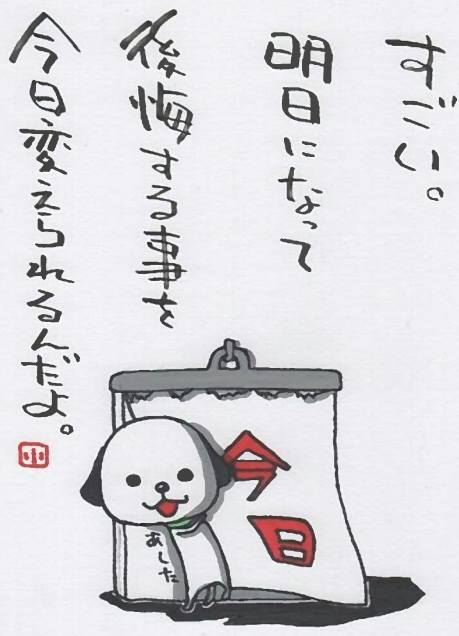 すごい。
明日になって
後悔する事を
今日変えられるんだよ。
小
今日
あした